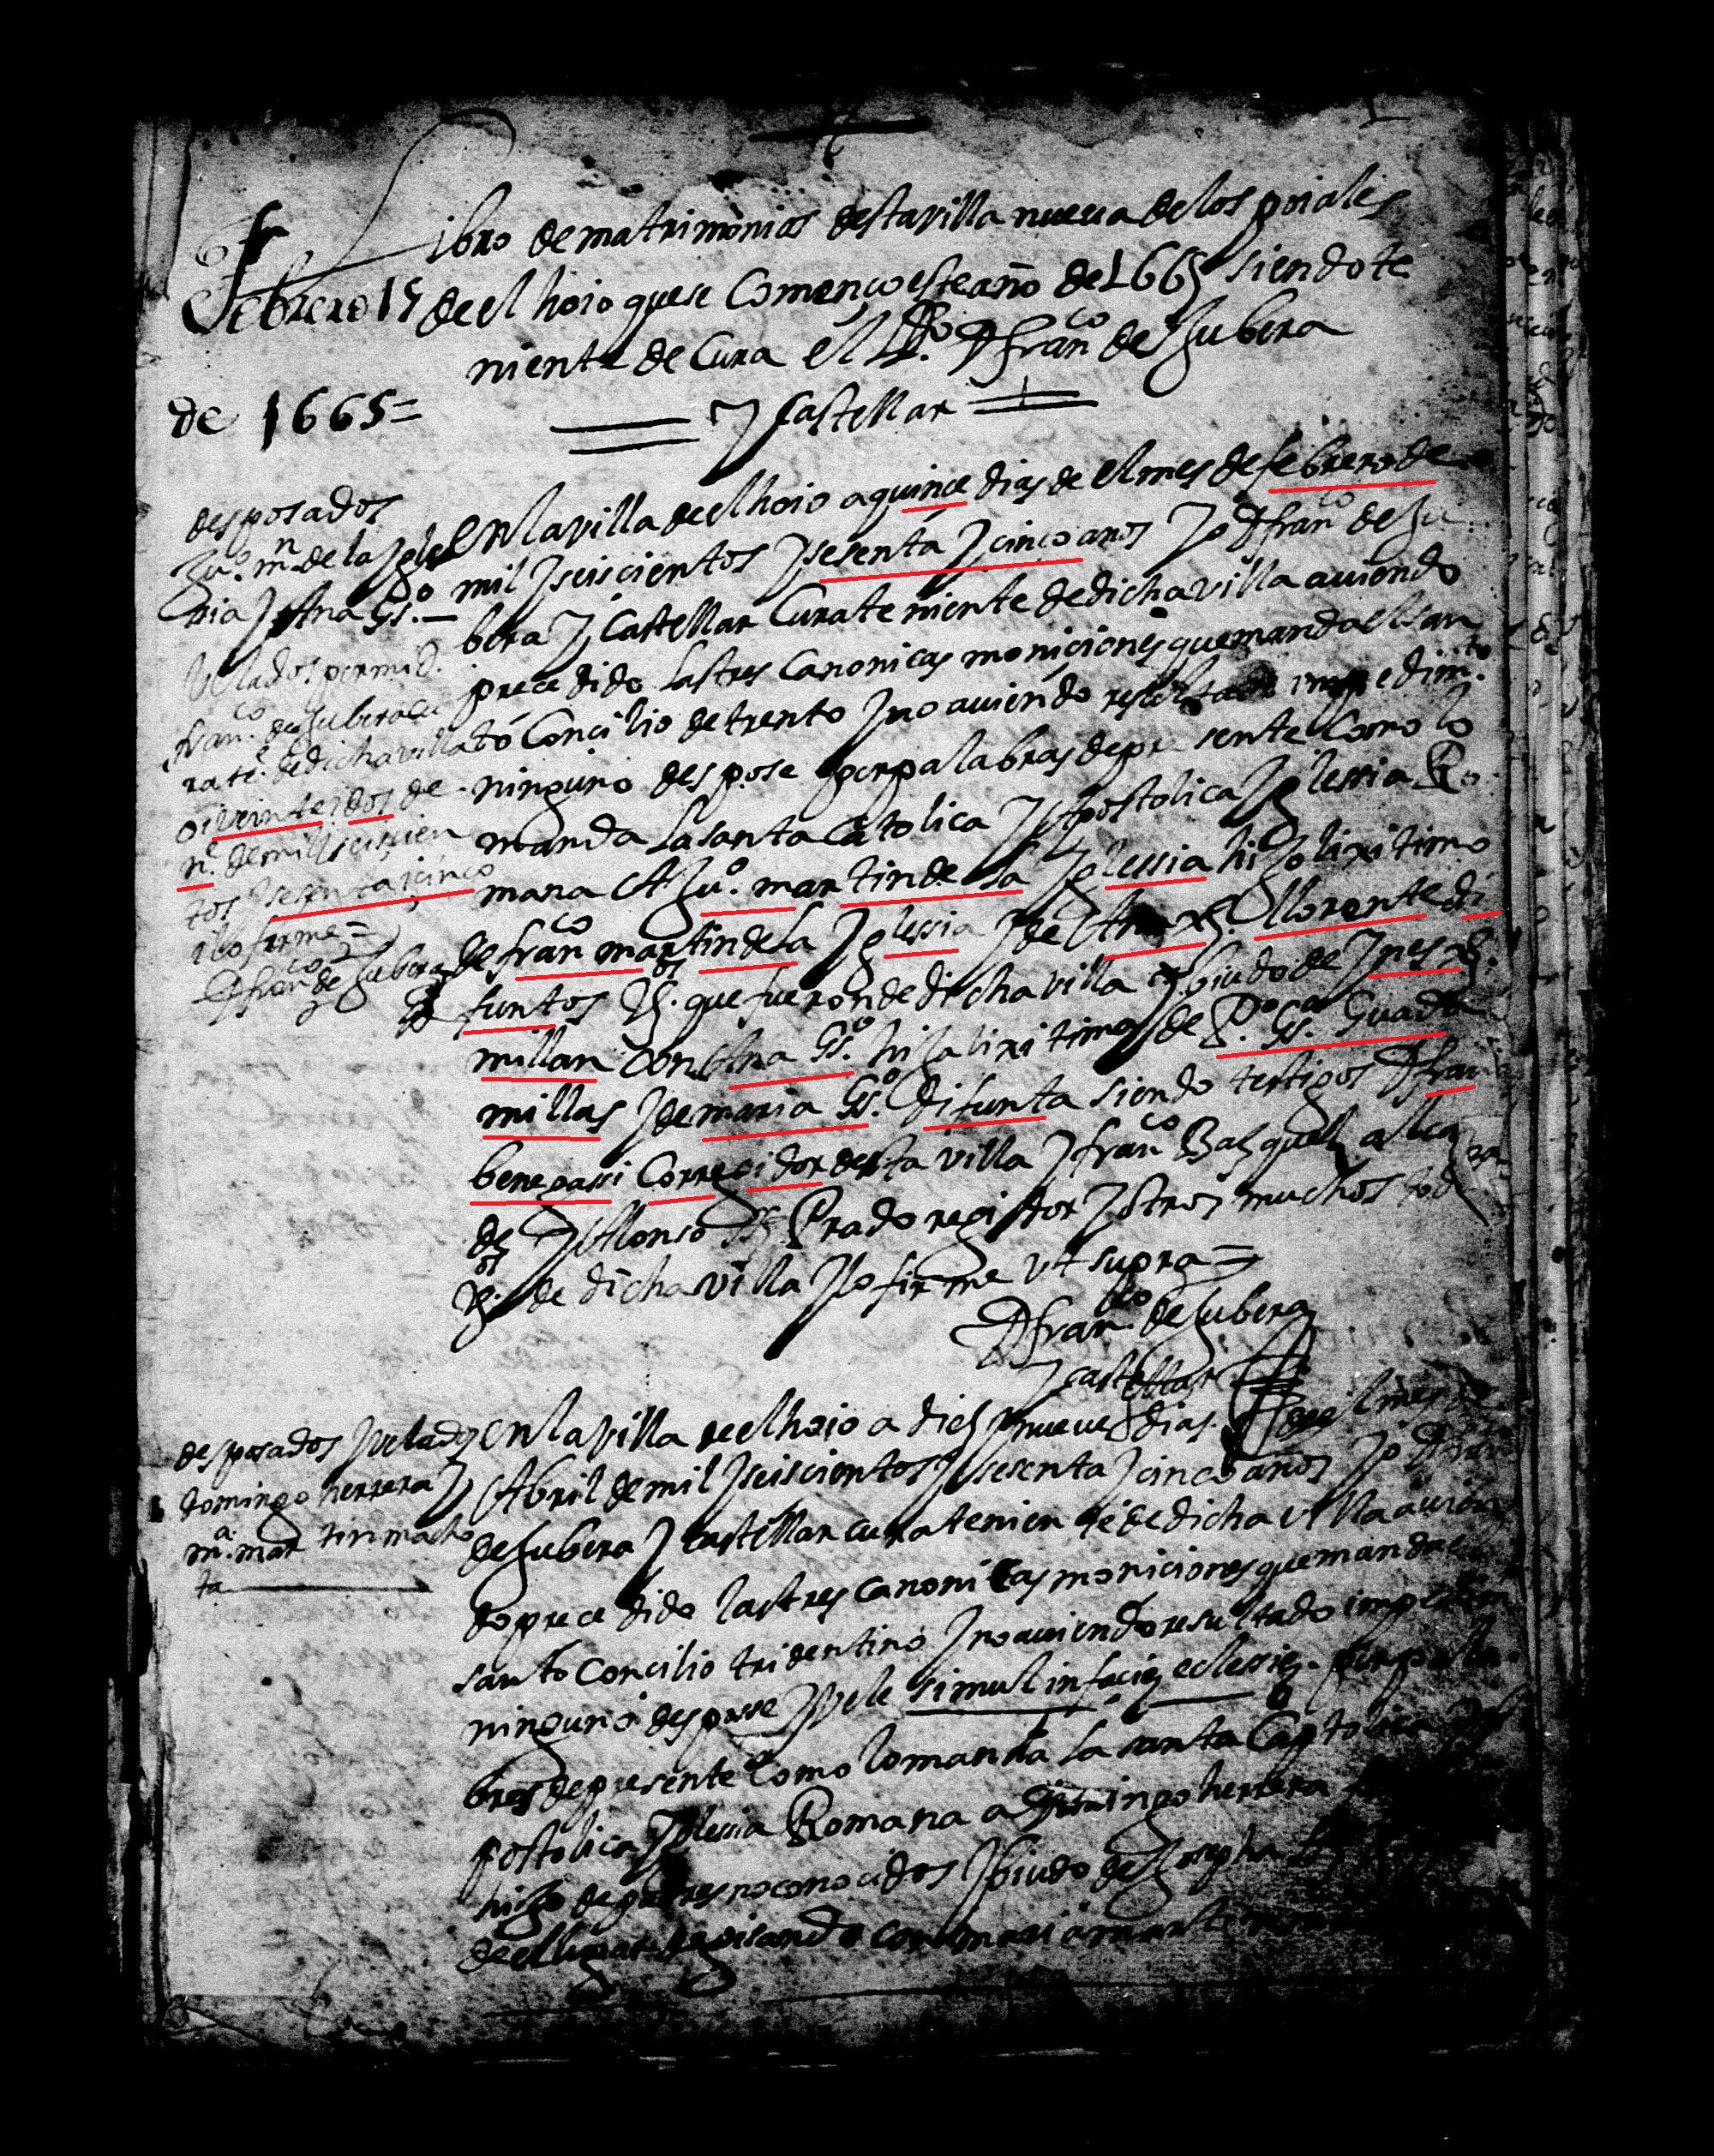 Libro de matrimonios desta villa nueva de los poiales
Febrero 15 de el hoio que se Començo este año de 1665 siendo te
niente de Cura el Ldo. D fran.co de Zubera
de 1665= y Castellar
desposados
Ju.o m.n de la Igle
sia y Ana Gs.o —
Velados por mi D.
fran.co de Zubera cu
ra te. de dicha villa
oi veinte i dos de
m.o de mil i seiscien
tos i sesenta i cinco
i lo firme =
D fran.co de Zubera
En la villa de el hoio a quinçe dias de el mes de febrero de
mil y seiscientos y sesenta y cinco anos yo D fran.co de Zu
bera y Castellar Cura teniente de dicha villa aviendo
precedido las tres Canonicas moniciones que manda el san
to Concilio de trento y no aviendo resultado impedim.to
ninguno despose por palabras de presente Como lo
manda la santa Catolica y Apostolica Iglessia Ro
mana A Ju.o martin de la Iglessia hijo lixitimo
de fran.co martin de la Iglessia y de Ana Llorente di
funtos que fueron de dicha villa y biudo de Ines
millan con Ana Gs.o hija lixitima de P.o Gs.o Guada
millas y de maria Gs.o difunta siendo testigos D fran.co
benegassi Corregidor desta villa y fran.co Bazquez alcal
de y Alonso Prado regidor y otros muchos
de dicha villa y lo firme ut supra =
D fran.co de Zubera
y castellar
desposados y velados
domingo herrera y
m.a martin macho
ta
En la villa de el hoio a diez y nueve dias de el mes de
Abril de mil y seiscientos y sesenta y cinco años yo D fran
de Zubera y castellar cura teniente de dicha villa avien
do precedido las tres canonicas moniciones que manda el
santo Concilio tridentino y no aviendo resultado impedim
ninguno despose y vele simul in facie eclessie por pala
bras de presente Como lo manda la santa Catolica
postolica Iglessia Romana a Domingo herrera
hijo de padres no conocidos y biudo de Josepha
de el lugar de con maria martin